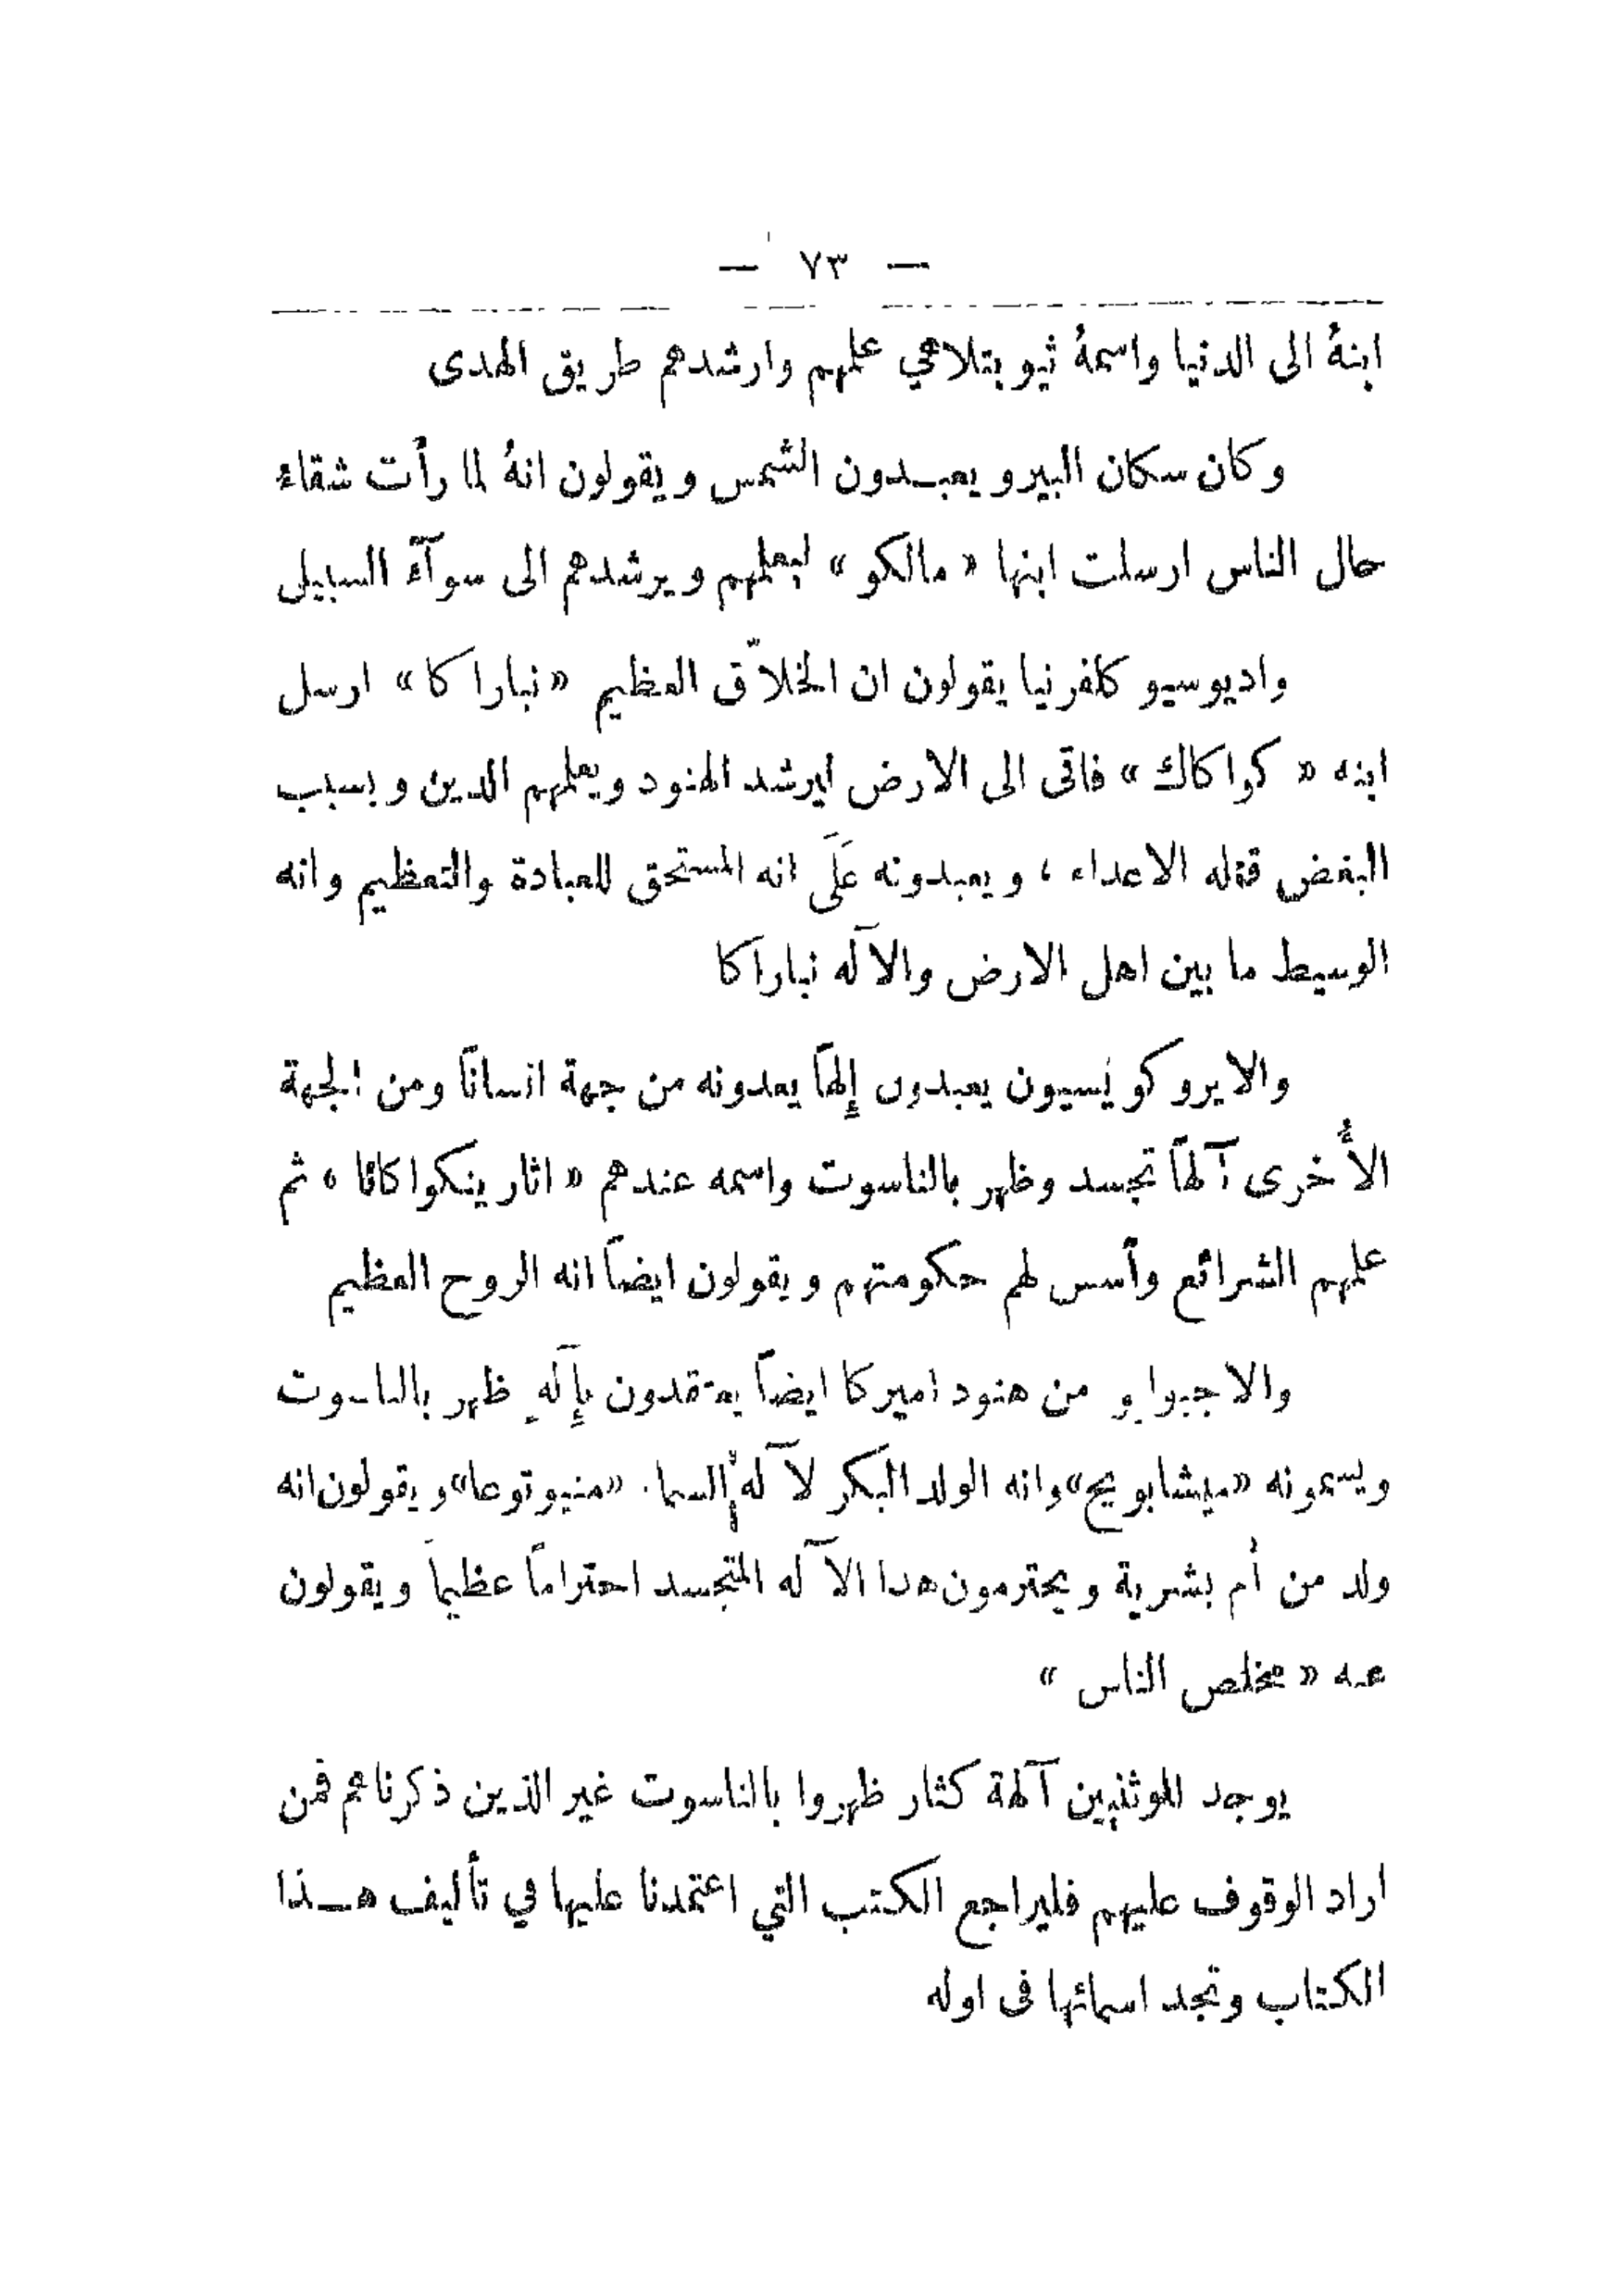 — ٧٣ —
ابنهُ الى الدنيا واسمهُ ثيو بتلاهي علمهم وارشدهم طريق الهدى
وكان سكان البيرو يعبـدون الشمس ويقولون انهُ لما رأت شقاء
حال الناس ارسلت ابنها « مالكو » ليعلمهم ويرشدهم الى سوآء السبيل
واديوسيو كلفرنيا يقولون ان الخلاّق العظيم «نبارا كا» ارسل
ابنه « كوا كاك » فاتى الى الارض ليرشد الهنود ويعلمهم الدين وبسبب
البغض قتله الاعداء ، ويعبدونه عَلَى انه المستحق للعبادة والتعظيم وانه
الوسيط ما بين اهل الارض والآله نباراكا
والايروكويَسيون يعبدون إِلهاً يعدونه من جهة انساناً ومن الجهة
الأُخرى آلهاً تجسد وظهر بالناسوت واسمه عندهم « اثار ينكوا كانا » ثم
علمهم الشرائع وأسس لهم حكومتهم ويقولون ايضاً انه الروح العظيم
والاجبوايو من هنود اميركا ايضاً يعتقدون بإِلَهٍ ظهر بالناسوت
ويسمونه «ميشابويح» وانه الولد البكر لآله السما. «منيوتوعا» ويقولون انه
ولد من أم بشرية ويحترمون هذا الآله المتجسد احتراماً عظيماً ويقولون
عنه « مخلص الناس »
يوجد للوثنيين آلهة كثار ظهروا بالناسوت غير الذين ذكرناهم فمن
اراد الوقوف عليهم فليراجع الكتب التي اعتمدنا عليها في تأليف هـذا
الكتاب وتجد اسمائها فى اوله